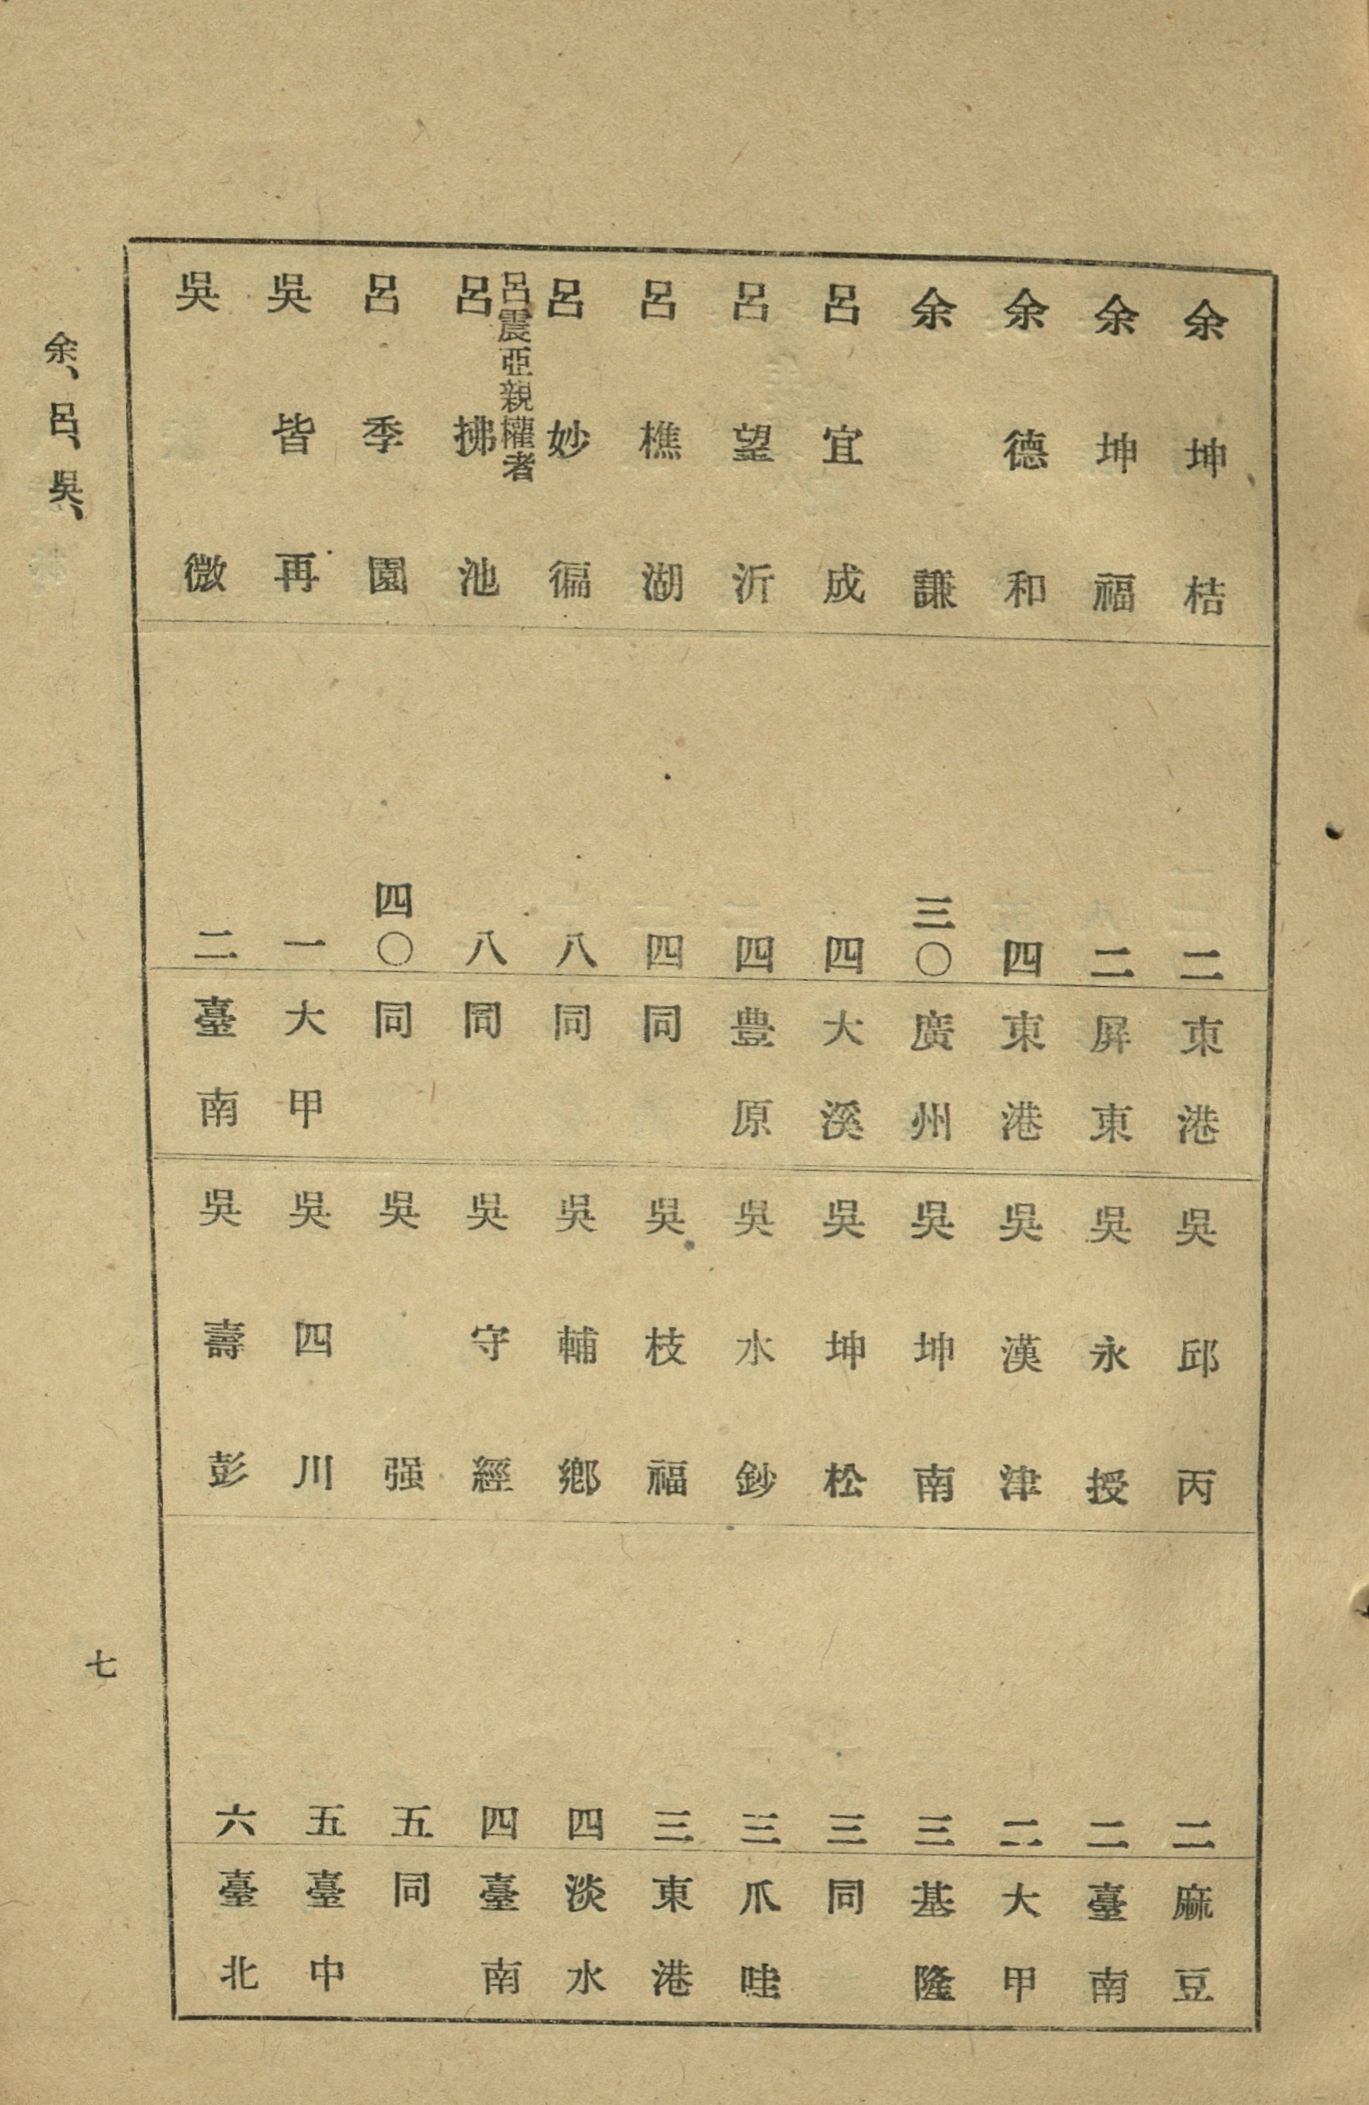 余坤桔 二 東港
余坤福 二 屏東
余德和 四 東港
余謙 三〇 廣州
呂宜成 四 大溪
呂望沂 四 豊原
呂樵湖 四 同
呂妙徧 八 同
呂震亞親權者
呂拂池 八 同
呂季園 四〇 同
吳皆再 一 大甲
吳微 二 臺南
吳邱丙 二 麻豆
吳永授 二 臺南
吳漢津 二 大甲
吳坤南 三 基隆
吳坤松 三 同
吳水鈔 三 爪哇
吳枝福 三 東港
吳輔鄕 四 淡水
吳守經 四 臺南
吳强 五 同
吳四川 五 臺中
吳壽彭 六 臺北
余、呂、吳、
七